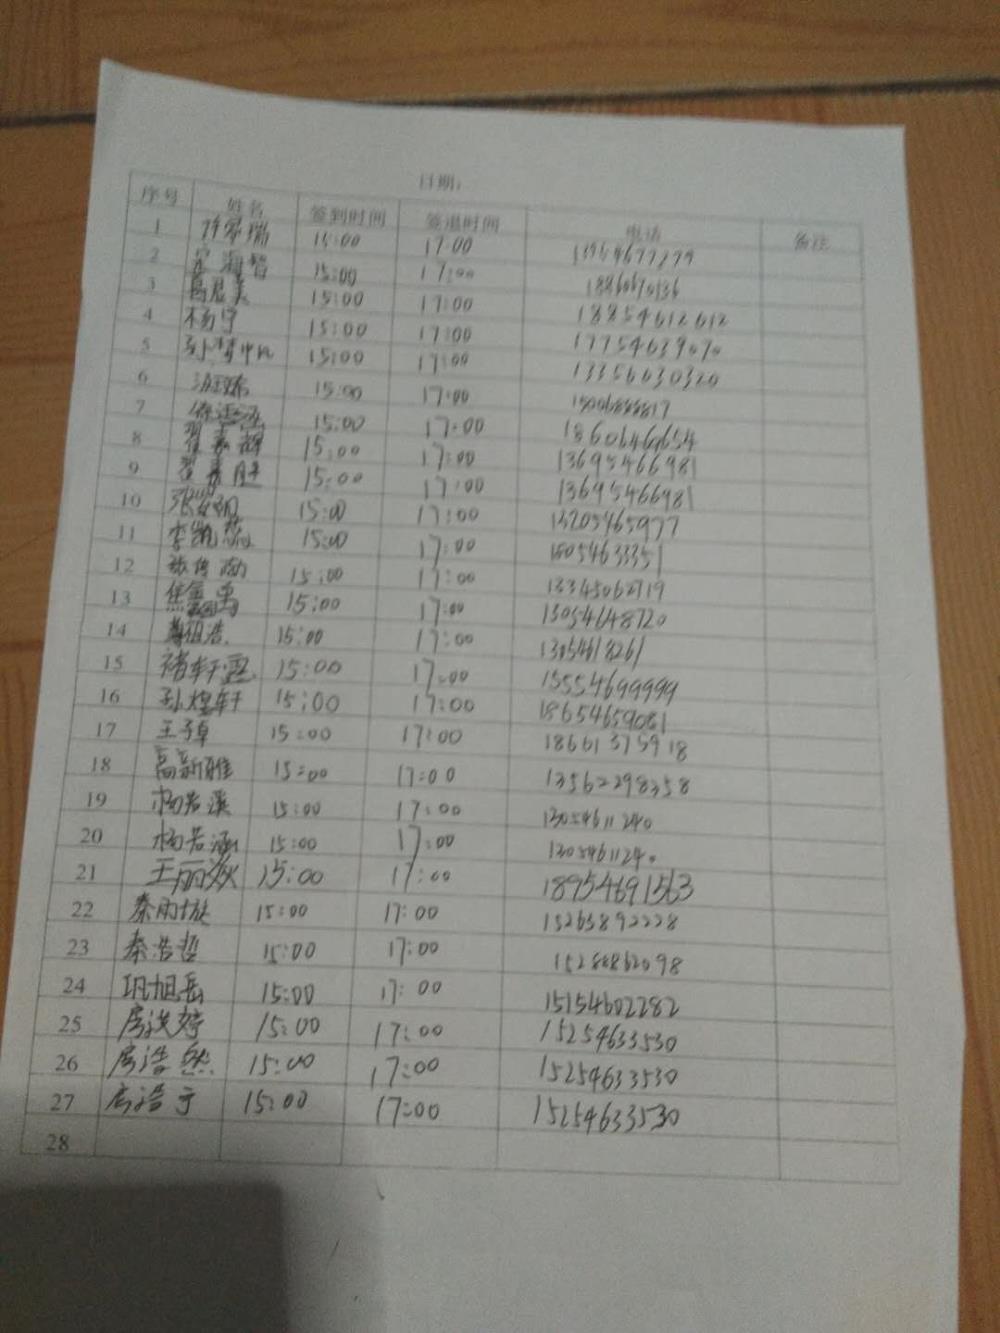 日期:
序号 姓名 签到时间 签退时间 电话 备注
1 许家瑞 15:00 17:00
2 15:00 17:00
3 15:00 17:00 18854612612
4 杨宁 15:00 17:00 17754639070
5 15:00 17:00 13356030320
6 15:00 17:00
7 15:00 17:00
8 翟嘉 15:00 17:00 13695466981
9 翟嘉 15:00 17:00 13695466981
10 15:00 17:00 13205465977
11 李凯 15:00 17:00 15054633351
12 张传 15:00 17:00 13345062719
13 焦 禹 15:00 17:00 13054648720
14 祖浩 15:00 17:00 13054618261
15 褚轩 15:00 17:00 15554699999
16 孙煜轩 15:00 17:00 18654659081
17 王子卓 15:00 17:00 18661375918
18 高新雅 15:00 17:00 13562298358
19 杨若溪 15:00 17:00 13054611240
20 杨若涵 15:00 17:00 13054611240
21 王丽 15:00 17:00 18954691563
22 秦雨 15:00 17:00 15263892228
23 秦浩哲 15:00 17:00
24 巩旭岳 15:00 17:00 15154602282
25 房 婷 15:00 17:00 15254633530
26 房浩然 15:00 17:00 15254633530
27 房浩宇 15:00 17:00 15254633530
28